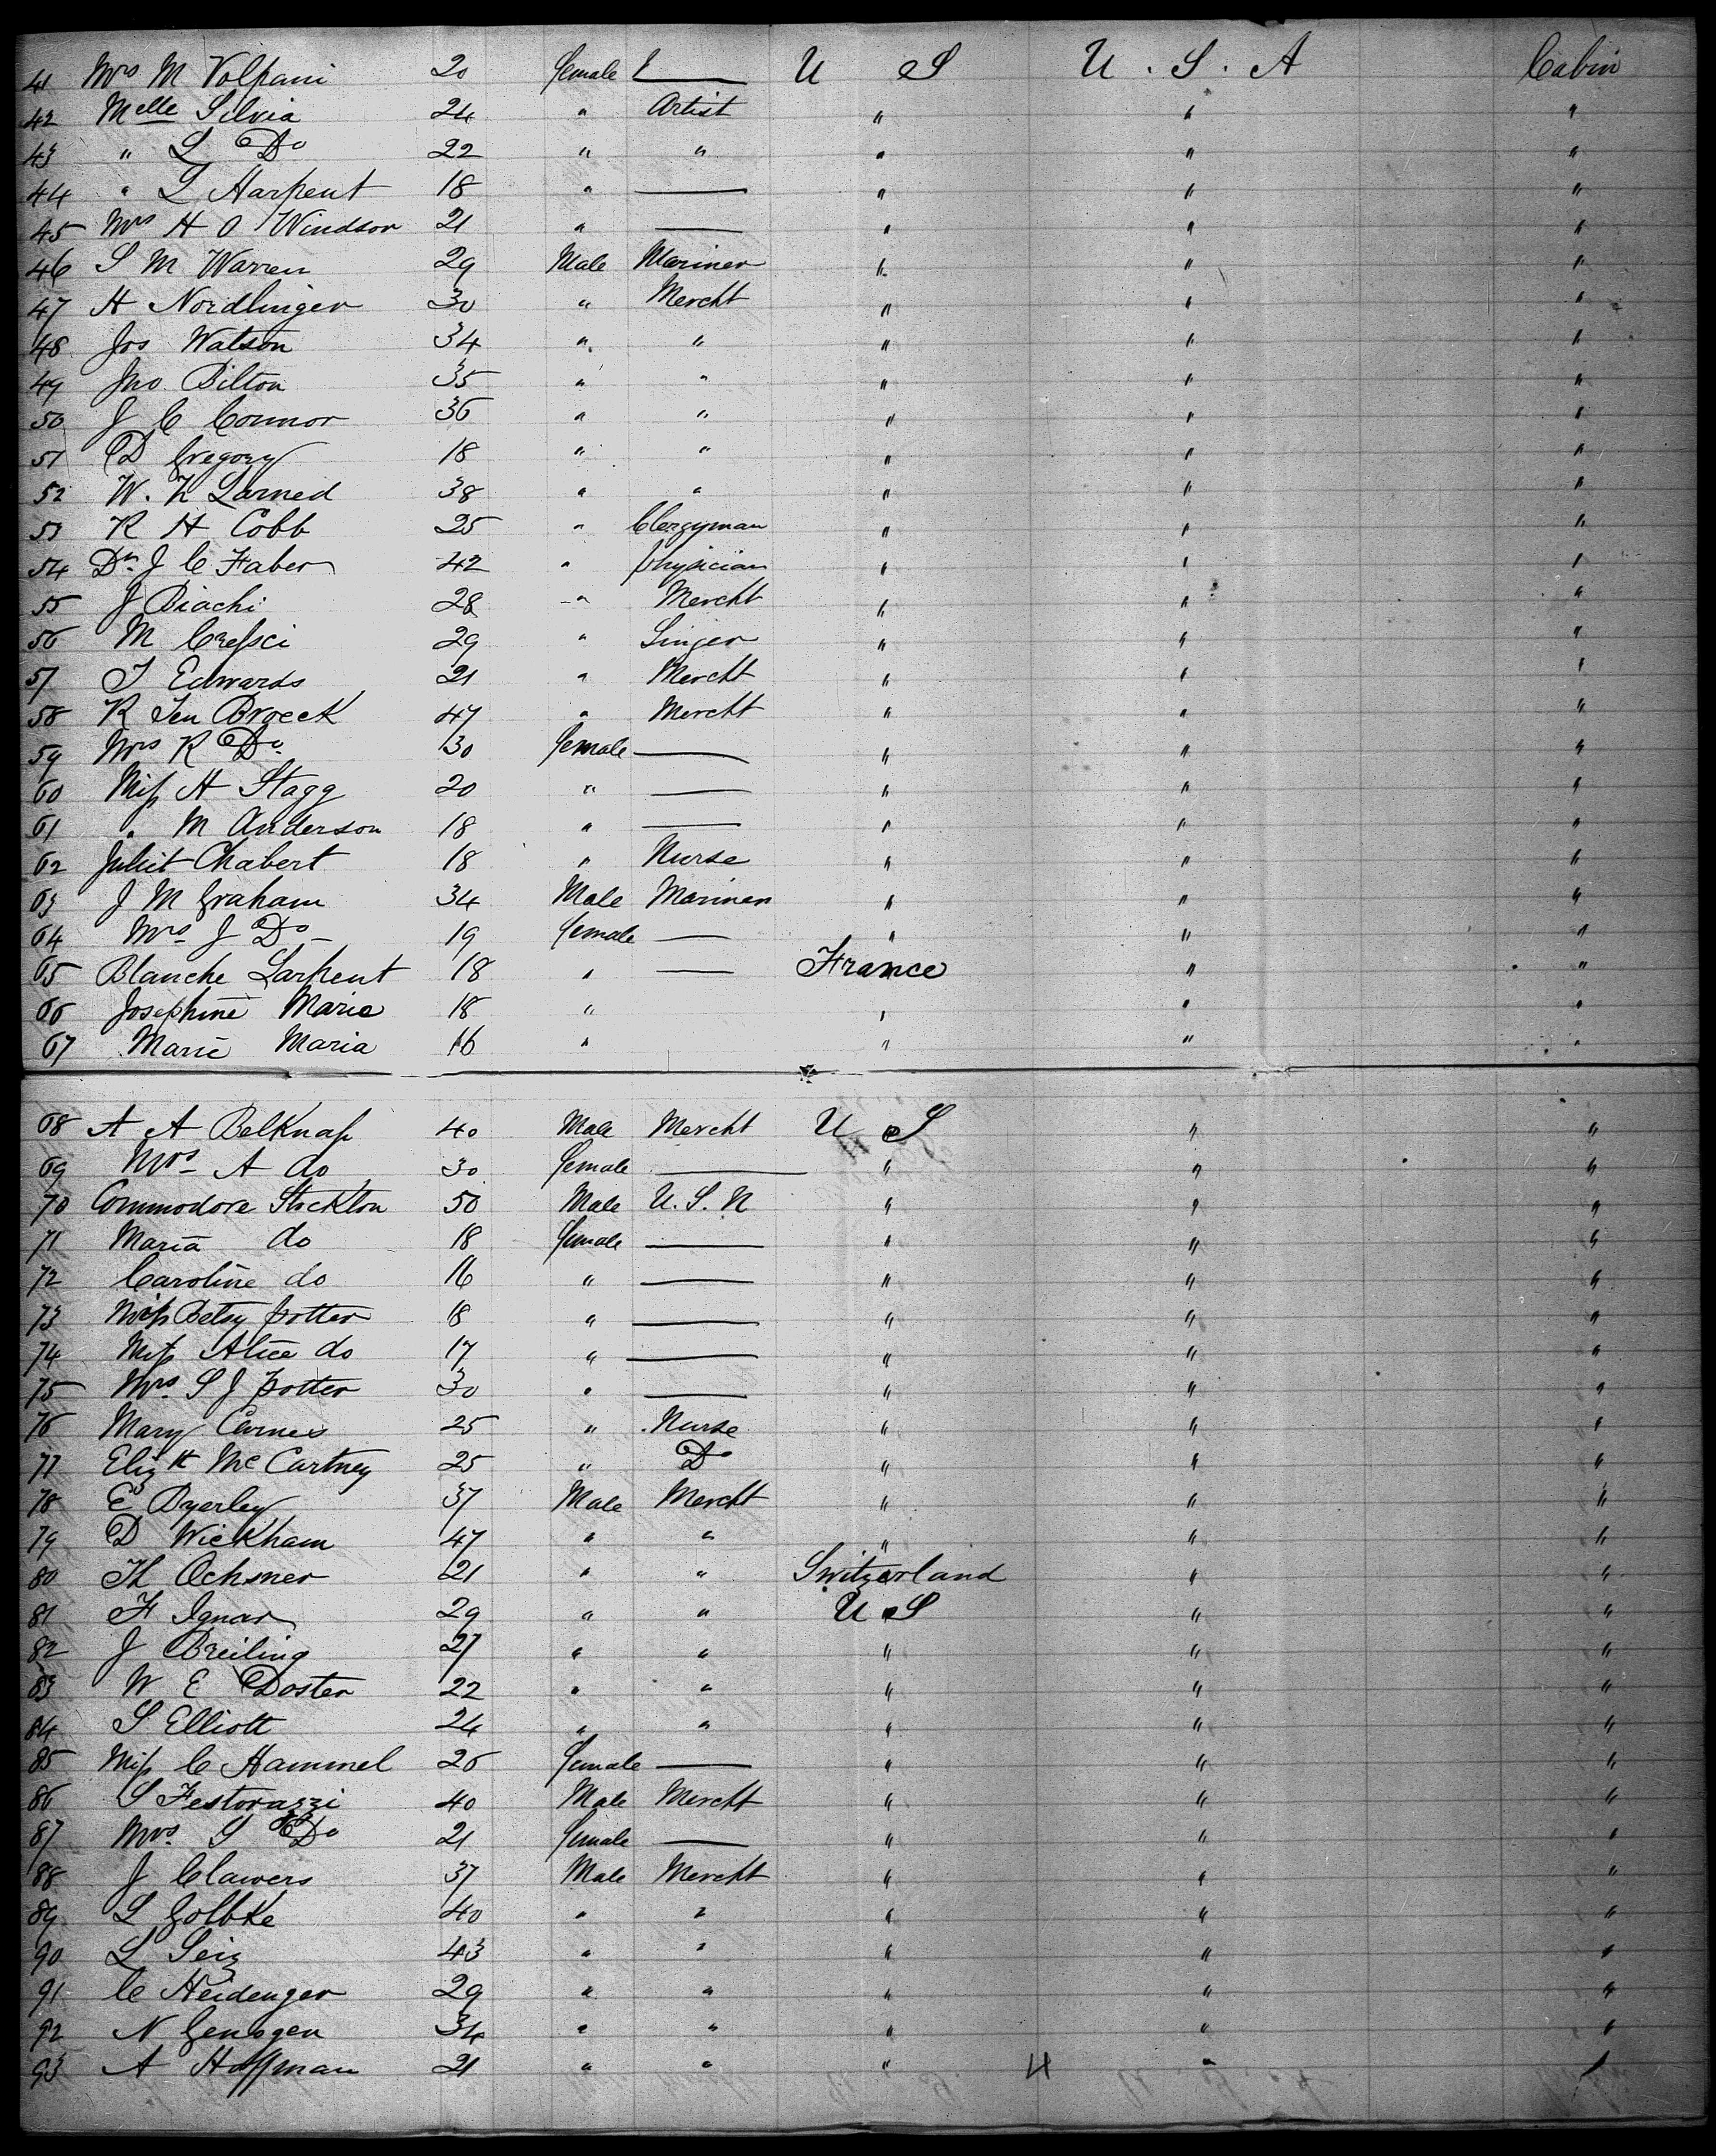 41 Mrs M Volpani 20 female — U S U. S. A Cabin
42 Melle Silvia 24 " Artist " " "
43 " L Do 22 " " " " "
44 " L Harpent 18 " — " " "
45 Mrs H O Windsor 21 " — " " "
46 S M Warren 29 Male Mariner " " "
47 H Nordlinger 30 " Mercht " " "
48 Jos Watson 34 " " " " "
49 Jno Bilton 35 " " " " "
50 J C Connor 36 " " " " "
51 D Gregory 18 " " " " "
52 W. Z Larned 38 " " " " "
53 R H Cobb 25 " Clergyman " " "
54 Dr. J C Faber 42 " physician " " "
55 J Biachi 28 " Mercht " " "
56 M Cressci 29 " Singer " " "
57 T Edwards 21 " Mercht " " "
58 R Ten Broeck 47 " Mercht " " "
59 Mrs R Do 30 female — " " "
60 Miss H Stagg 20 " — " " "
61 " M Anderson 18 " — " " "
62 Juliet Chabert 18 " Nurse " " "
63 J M Graham 34 Male Mariner " " "
64 Mrs J Do 19 female — " " "
65 Blanche Larpent 18 " — France " "
66 Josephine Marie 18 " " " "
67 Marie Maria 16 " " " "
68 A A Belknap 40 Male Mercht U S " "
69 Mrs A do 30 female — " " "
70 Commodore Stockton 50 Male U. S. N " " "
71 Maria do 18 female — " " "
72 Caroline do 16 " — " " "
73 Miss Betsy potter 18 " — " " "
74 Miss Alice do 17 " — " " "
75 Mrs S J potter 30 " — " " "
76 Mary Carnes 25 " Nurse " " "
77 Elizth McCartney 25 " Do " " "
78 E Byerley 37 Male Mercht " " "
79 D Wickham 47 " " " " "
80 Th Ochsner 21 " " Switzerland " "
81 F Ignar 29 " " U S " "
82 J Breiling 27 " " " " "
83 W E Doster 22 " " " " "
84 S Elliott 24 " " " " "
85 Miss C Hammel 26 female — " " "
86 S Festorazzi 40 Male Mercht " " "
87 Mrs S Do 21 female — " " "
88 J Clawers 37 Male Mercht " " "
89 L Golbke 40 " " " " "
90 L Seiz 43 " " " " "
91 C Heidenger 29 " " " " "
92 N Gensgen 34 " " " " "
93 A Hoffman 21 " " " 4 " "